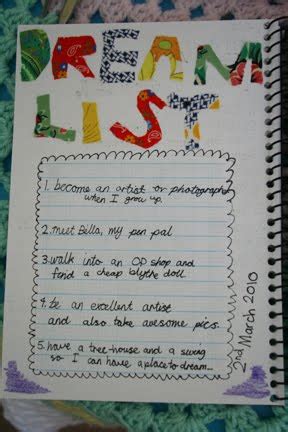 DREAM
LIST
1. become an artist or photographer
when I grow up.
2. meet Bella, my pen pal
3. walk into an OP shop and
find a cheap blythe doll
4. be an excellent artist
and also take awesome pics.
5. have a tree-house and a swing
so I can have a place to dream...
2nd March 2010